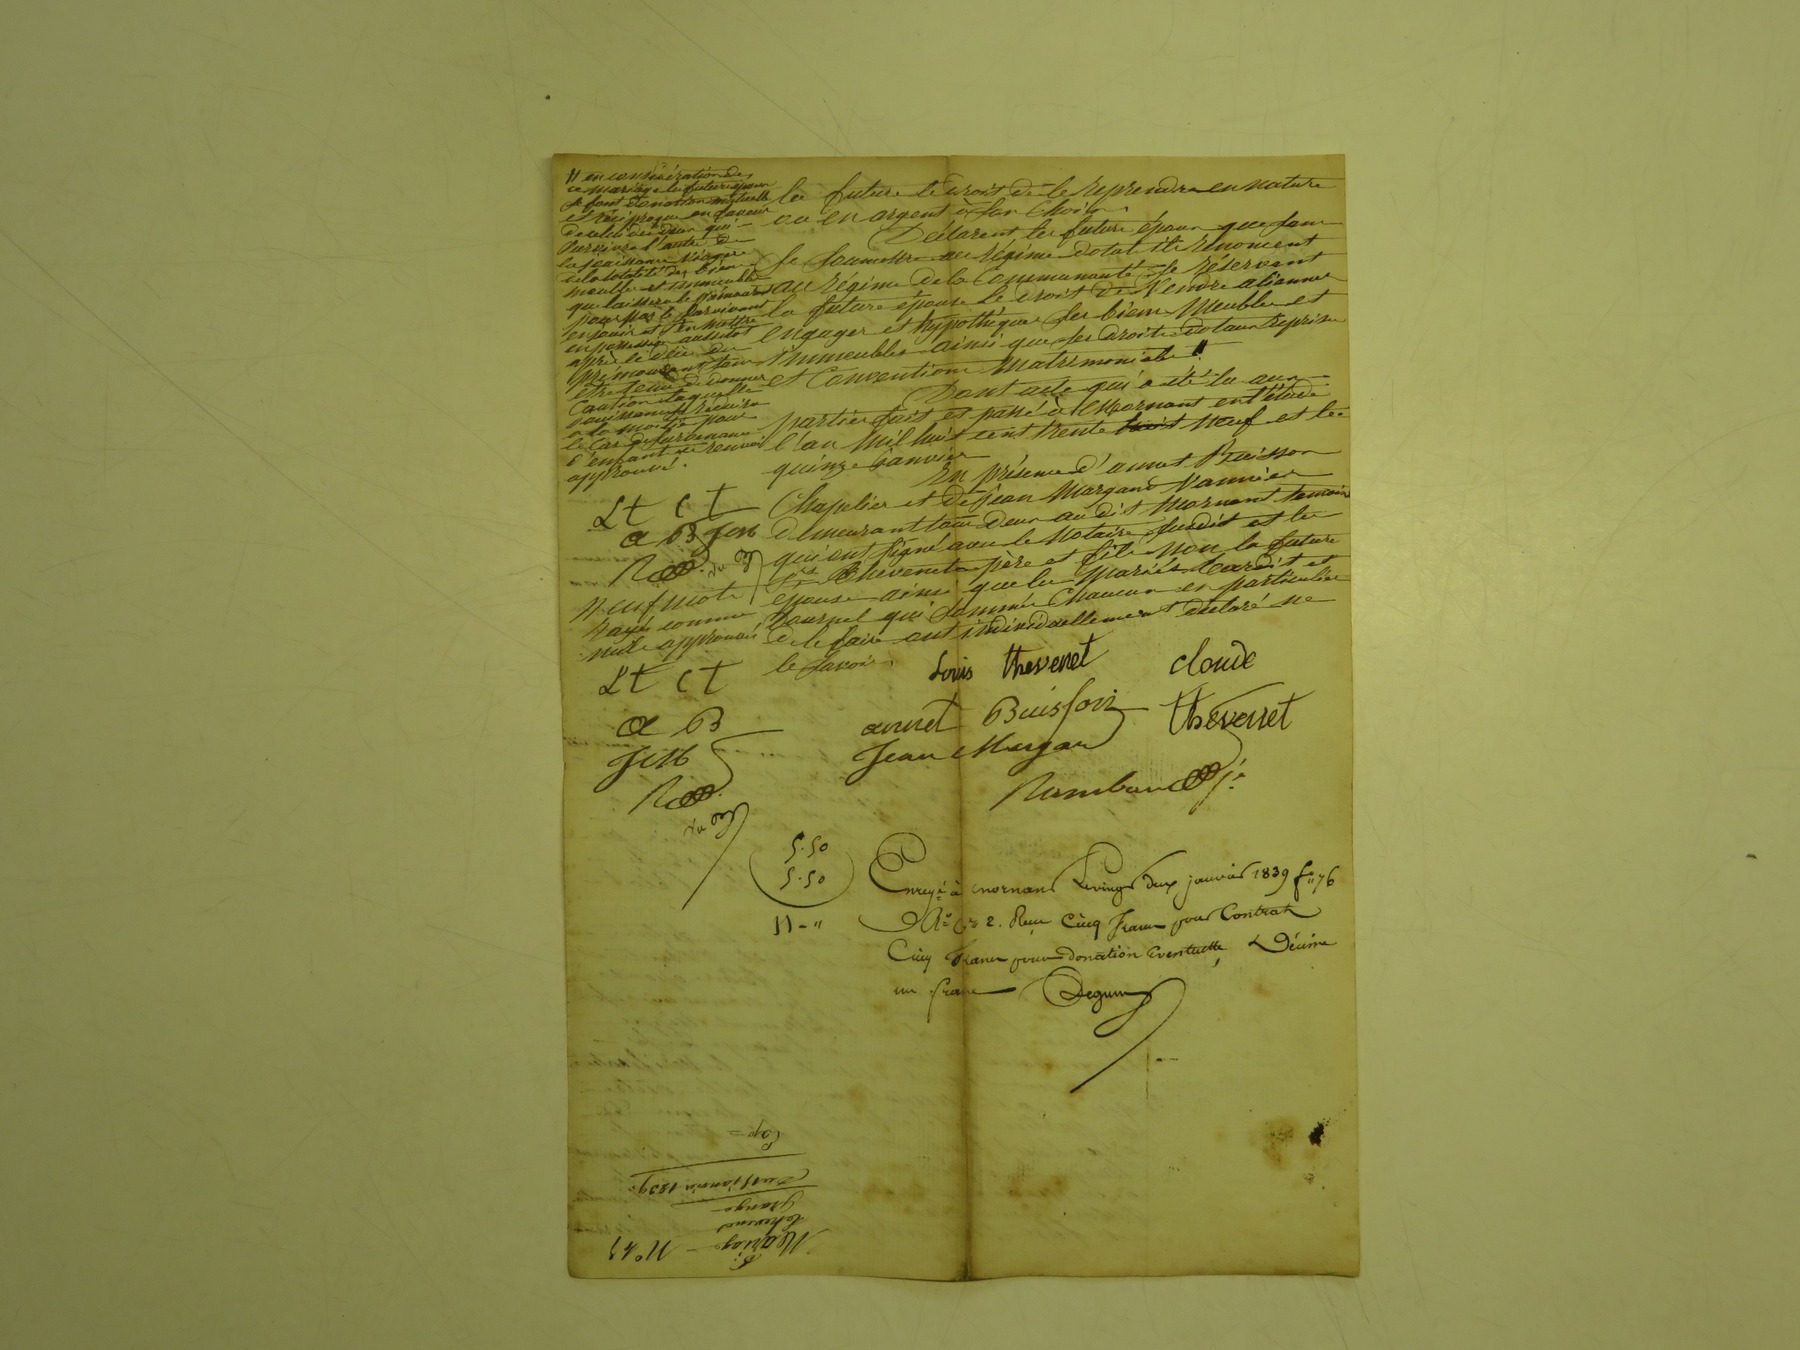 la future le droit de le reprendre en nature
ou en argent à son Choix.
Déclarent les futurs époux que sans
se soumettre au régime dotal ils renoncent
au régime de la Communauté. Se réservant
la future épouse le droit de Vendre aliéner
engager et hypothéquer ses biens Meubles et
immeubles ainsi que ses droits dotaux reprises
et Conventions Matrimoniales. //
Dont acte qui a été lu aux
parties fait et passé à Mornant en l'étude
l'an Mil huit cent trente neuf et le
quinze Janvier
En présence d'annet Buisson
Chapelier et de Jean Margand Vannier
demeurant tous deux au dit Mornant temoins
qui ont signé avec le Notaire susdit et les
Thevenet père et fils non la future
épouse ainsi que les Mariés et
qui sommés Chacun en particulier
de le faire ont individuellement declaré ne
le savoir.
// en considération de
ce mariage les futurs époux
se font donation mutuelle
et réciproque en faveur
de celui d'eux qui
survivra l'autre de
la jouissance viagère
de la totalité des biens
meubles et immeubles
que laissera le prémourant
pour par le survivant
en jouir et s'en mettre
en possession aussitôt
après le décès du
prémourant sans
être tenu de donner
Caution laquelle
jouissance sera réduira
à la moitié pour
le Cas de survenance
d'enfants renvoi
approuvé.
Lt Ct
a B JM
R
Neuf mots
rayés comme
nuls approuvés
Lt Ct
a B
JM
R
Louis thevenet claude
annet Buisson thevenet
Jean Margan
Rambaud Je
5.50
5.50
11 - "
Enregé à mornant le vingt deux janvier 1839 fo 76
Ro Ce 2. Reçu Cinq Francs pour Contrat
Cinq Francs pour donation Eventuelle & Décime
un franc Deguin
No 43
Mariage
thevenet
Grange
Du 15 janvier 1839.
Exp =